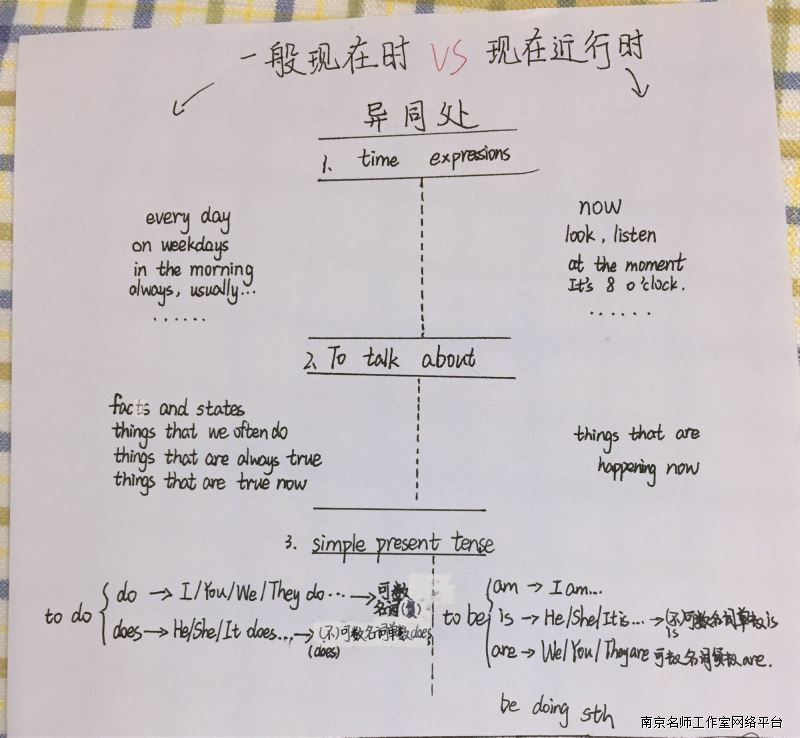 一般现在时 VS 现在近行时
异同处
1. time expressions
every day
on weekdays
in the morning
always, usually...
......
now
look, listen
at the moment
It's 8 o'clock.
......
2. To talk about
facts and states
things that we often do
things that are always true
things that are true now
things that are
happening now
3. simple present tense
to do
do → I/You/We/They do... → 可数
名词(复)
does → He/She/It does... → (不)可数名词单数does
(does)
to be
am → I am...
is → He/She/It is... → (不)可数名词单数is
is
are → We/You/They are 可数名词复数are.
be doing sth
南京名师工作室网络平台